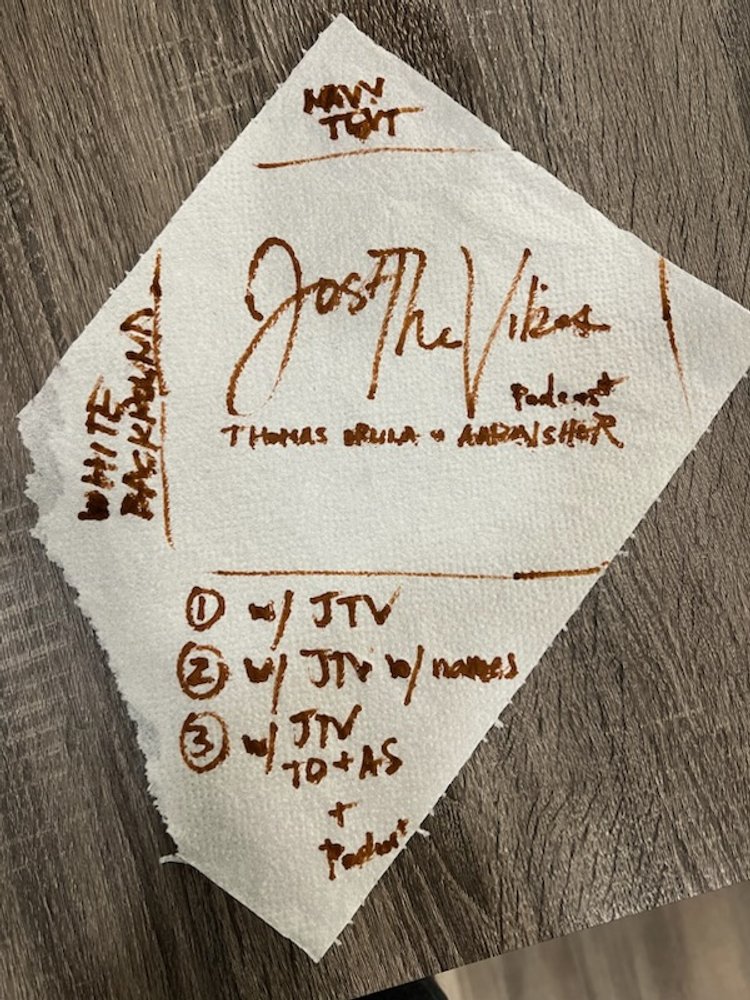 NAVY
TEXT
WHITE
BACKROUND
Just The Vibes
Podcast
THOMAS + AARON SHER
① w/ JTV
② w/ JTV w/ names
③ w/ JTV
TD + AS
+
Podcast